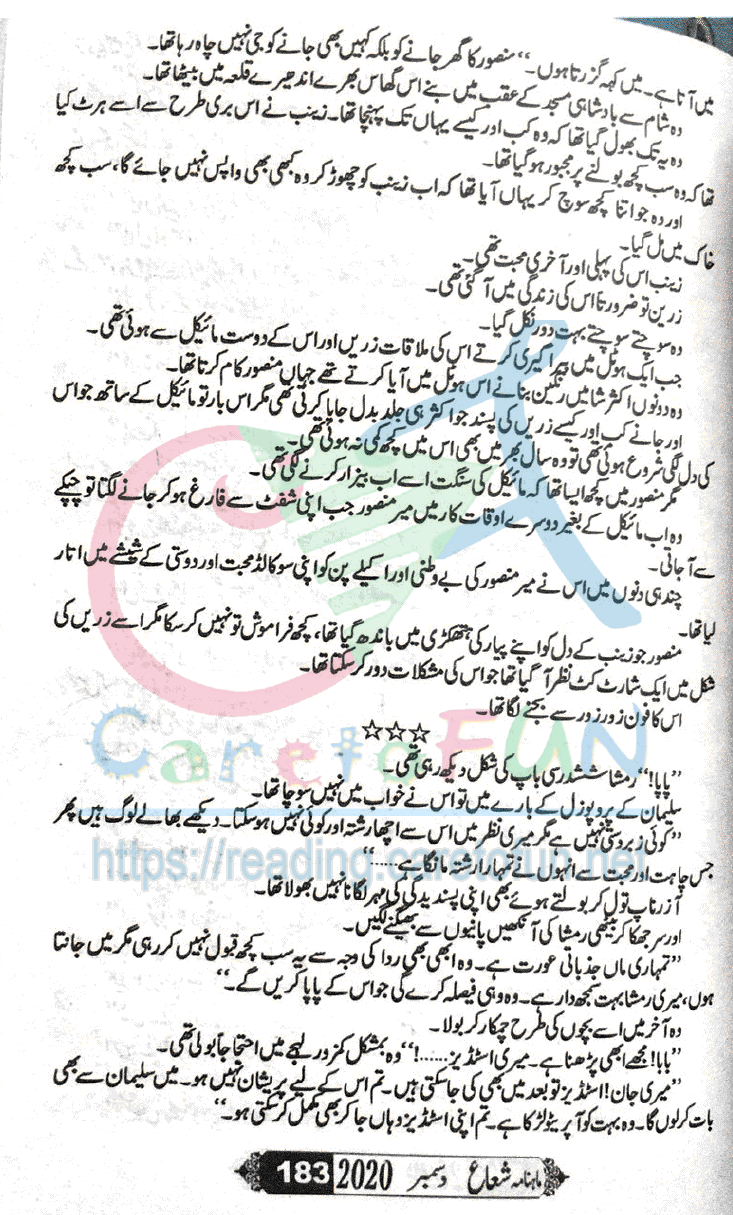 میں آتا ہے۔ میں کہہ گزرتا ہوں۔“ منصور کا گھر جانے کو بلکہ کہیں بھی جانے کو جی نہیں چاہ رہا تھا۔
وہ شام سے بادشاہی مسجد کے عقب میں بنے اس گھاس بھرے اندھیرے قلعہ میں بیٹھا تھا۔
وہ یہ تک بھول گیا تھا کہ وہ کب اور کیسے یہاں تک پہنچا تھا۔ زینب نے اس بری طرح سے اسے ہرٹ کیا
تھا کہ وہ سب کچھ بولنے پر مجبور ہو گیا تھا۔
اور وہ جو اتنا کچھ سوچ کر یہاں آیا تھا کہ اب زینب کو چھوڑ کر وہ کبھی بھی واپس نہیں جائے گا، سب کچھ
خاک میں مل گیا۔
زینب اس کی پہلی اور آخری محبت تھی۔
زرین تو ضرورتاً اس کی زندگی میں آ گئی تھی۔
وہ سوچتے سوچتے بہت دور نکل گیا۔
جب ایک ہوٹل میں بیرا گیری کرتے اس کی ملاقات زریں اور اس کے دوست مائیکل سے ہوئی تھی۔
وہ دونوں اکثر شامیں رنگین بنانے اس ہوٹل میں آیا کرتے تھے جہاں منصور کام کرتا تھا۔
اور جانے کب اور کیسے زریں کی پسند جو اکثر ہی جلد بدل جایا کرتی تھی مگر اس بار تو مائیکل کے ساتھ جو اس
کی دل لگی شروع ہوئی تھی تو وہ سال بھر میں بھی اس میں کچھ کمی نہ ہوئی تھی۔
مگر منصور میں کچھ ایسا تھا کہ مائیکل کی سنگت اسے اب بیزار کرنے لگی تھی۔
وہ اب مائیکل کے بغیر دوسرے اوقات کار میں میر منصور جب اپنی شفٹ سے فارغ ہو کر جانے لگتا تو چپکے
سے آ جاتی۔
چند ہی دنوں میں اس نے میر منصور کی بے وطنی اور اکیلے پن کو اپنی سو کالڈ محبت اور دوستی کے شیشے میں اتار
لیا تھا۔
منصور جو زینب کے دل کو اپنے پیار کی ہتھکڑی میں باندھ گیا تھا، کچھ فراموش تو نہیں کر سکا مگر اسے زریں کی
شکل میں ایک شارٹ کٹ نظر آ گیا تھا جو اس کی مشکلات دور کر سکتا تھا۔
اس کا فون زور زور سے بجنے لگا تھا۔
☆☆☆
”پاپا!“ رمشا ششدر سی باپ کی شکل دیکھ رہی تھی۔
سلیمان کے پروپوزل کے بارے میں تو اس نے خواب میں نہیں سوچا تھا۔
”کوئی زبردستی نہیں ہے مگر میری نظر میں اس سے اچھا رشتہ اور کوئی نہیں ہو سکتا۔ دیکھے بھالے لوگ ہیں پھر
جس چاہت اور محبت سے انہوں نے تمہارا رشتہ مانگا ہے.....“
آزر ناپ تول کر بولتے ہوئے بھی اپنی پسندیدگی کی مہر لگانا نہیں بھولا تھا۔
اور سر جھکا کر بیٹھی رمشا کی آنکھیں پانیوں سے بھیگنے لگیں۔
”تمہاری ماں جذباتی عورت ہے۔ وہ ابھی بھی ردا کی وجہ سے یہ سب کچھ قبول نہیں کر رہی مگر میں جانتا
ہوں، میری رمشا بہت سمجھ دار ہے۔ وہ وہی فیصلہ کرے گی جو اس کے پاپا کریں گے۔“
وہ آخر میں اسے بچوں کی طرح چمکار کر بولا۔
”بابا! مجھے ابھی پڑھنا ہے۔ میری اسٹڈیز......!“ وہ بمشکل کمزور لہجے میں احتجاجاً بولی تھی۔
”میری جان! اسٹڈیز تو بعد میں بھی کی جا سکتی ہیں۔ تم اس کے لیے پریشان نہیں ہو۔ میں سلیمان سے بھی
بات کر لوں گا۔ وہ بہت کو آپریٹو لڑکا ہے۔ تم اپنی اسٹڈیز وہاں جا کر بھی مکمل کر سکتی ہو۔“
ماہنامہ شعاع دسمبر 2020 183
CaretoFUN
https://reading.caretofun.net